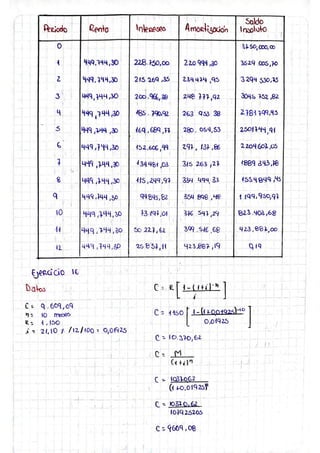 Periodo Renta Intereses Amortización Saldo Insoluto
0 3 750,000,00
1 449,744,30 228 750,00 220 994,30 3524 005,70
2 449,744,30 215 269,35 234474,95 3294 530,75
3 449,744,30 200.966,38 248 777,92 3045 752,82
4 449,744,30 185.790,92 263 953 38 2781 799,45
5 449,744,30 169,689,77 280,054,53 2501744,91
6 449,744,30 152,606,44 297,137,86 2204603,05
7 449,744,30 134481,03 315 263,27 1889 343,78
8 449,744,30 115,249,97 334 494,33 1554849,45
9 449,744,30 94845,82 354 898,48 1 199,950,97
10 449,744,30 73 197,01 376 547,29 823.403,68
11 449,744,30 50 227,62 399.516,68 423,887,00
12 449,744,30 25 857,11 423,887,19 0,19
Ejercicio 16
Datos
C = 9.609,09
n = 10 meses
R = 1.150
i = 21,10 / /12/100 = 0,01925
C = R [ 1-(1+i)⁻ⁿ / i ]
C = 1150 [ 1-(1+0,01925)⁻¹⁰ / 0,01925 ]
C = 10.370,62
C = M / (1+i)ⁿ
C = 1037062 / (1+0,01925)⁴
C = 10370,62 / 107925205
C = 9609,08